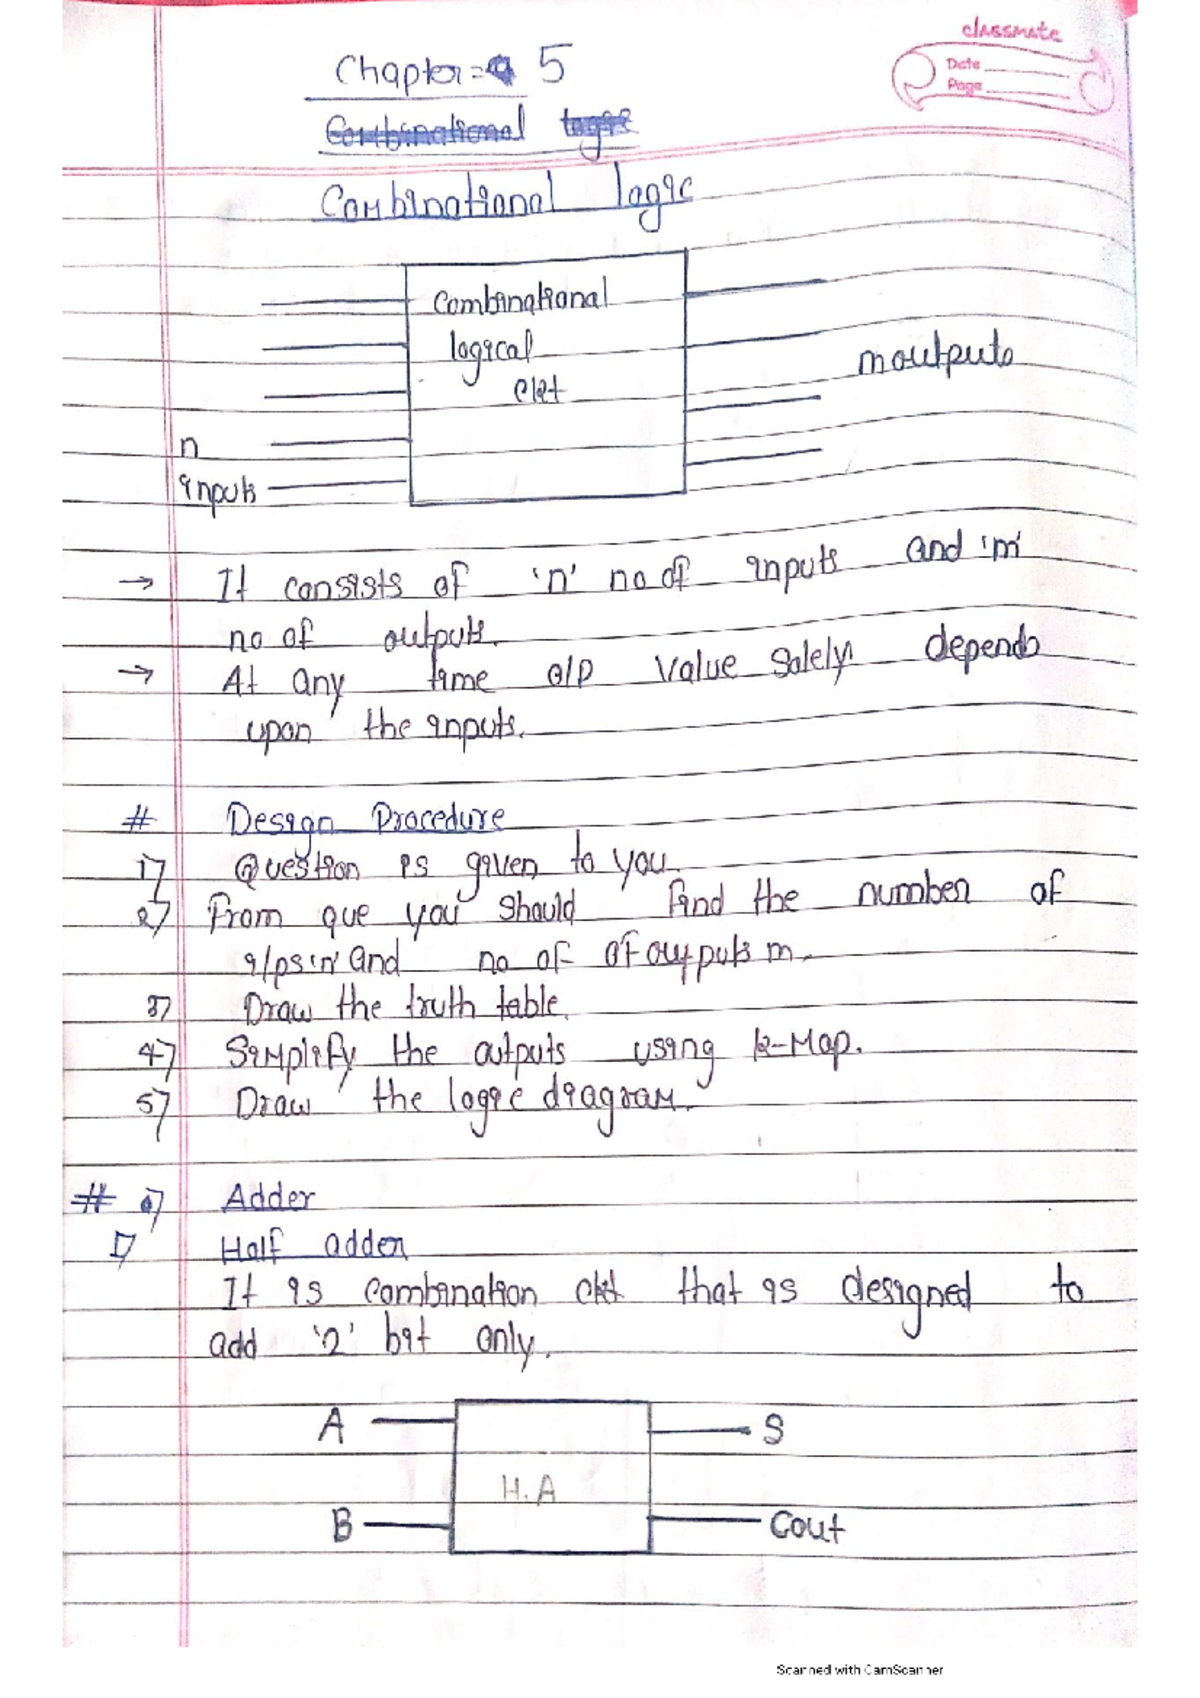 classmate
Date
Page
Chapter = 5
Combinational logic
Combinational logic
Combinational
logical
ckt
m outputs
n
inputs
→ It consists of 'n' no of inputs and 'm'
no of outputs.
→ At any time o/p value solely depends
upon the inputs.
# Design Procedure
1) Question is given to you.
2) From que you should find the number of
i/ps 'n' and no of of outputs m.
3) Draw the truth table.
4) Simplify the outputs using k-Map.
5) Draw the logic diagram.
# Adder
1) Half adder
It is combination ckt that is designed to
add '2' bit only.
A S
H.A
B Cout
Scanned with CamScanner